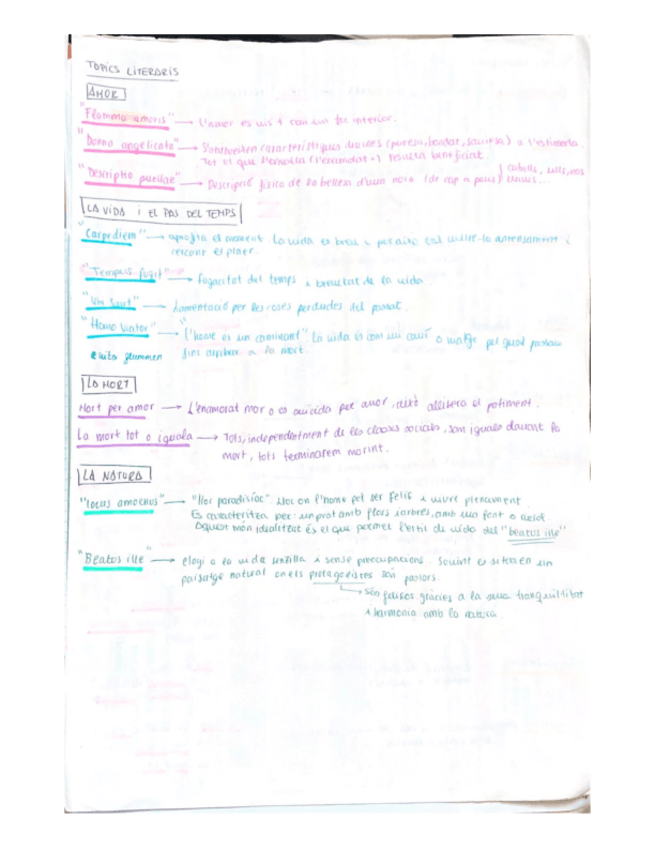 TOPICS LITERARIS
AMOR
"Flamma amoris" → L'amor es vis + com un foc interior.
"Donna angelicata" → S'atribueixen característiques divines (puresa, bondat, saviesa) a l'estimada.
Tot el que l'envolta (l'enamorat +) resulta beneficiat.
"Descriptio puellae" → Descripció física de la bellesa d'una noia (de cap a peus) cabells, ulls, nas
LA VIDA I EL PAS DEL TEMPS
"Carpe diem" → aprofita el moment. La vida es breu i per això cal viure-la intensament i
el plaer.
"Tempus fugit" → fugacitat del temps i brevetat de la vida.
"Ubi sunt" → Lamentació per les coses perdudes del passat.
"Homo viator" → "l'home es un caminant" La vida és com un camí o viatge pel qual passam
fins arribar a la mort.
LA MORT
Mort per amor → L'enamorat mor o es suicida per amor, allibera el patiment.
La mort tot o iguala → Tots, independentment de les classes socials, som iguals davant la
mort, tots terminarem morint.
LA NATURA
"locus amoenus" → "lloc paradisíac" lloc on l'home pot ser feliç i viure plenament.
Es caracteritza per: un prat amb flors i arbres, amb una font o
Aquest món idealitzat és el que permet l'estil de vida del "beatus ille"
"Beatus ille" → elogi a la vida senzilla i sense preocupacions. Sovint es situa en un
paisatge natural on els protagonistes són pastors.
són feliços gràcies a la seua tranquil·litat
i harmonia amb la natura.